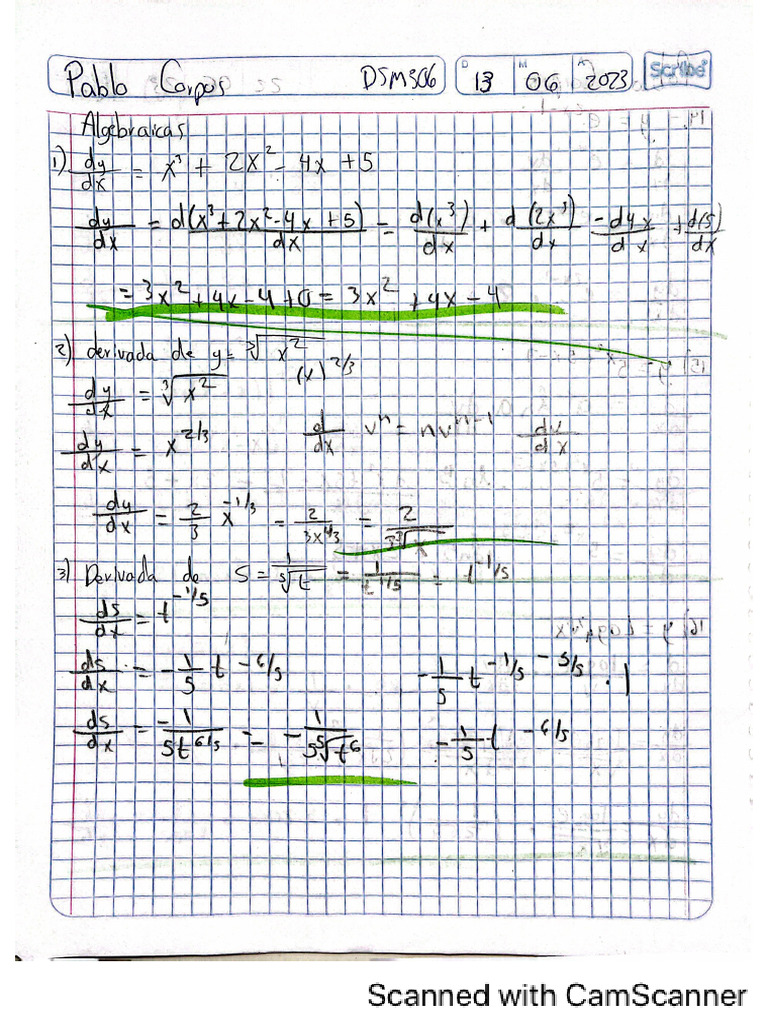 Pablo Campos DSM306 D 13 M 06 A 2023 Scribe
Algebraicas
1) dy/dx = x³ + 2x² - 4x + 5
dy/dx = d(x³+2x²-4x+5)/dx = d(x³)/dx + d(2x³)/dx -d4x/dx + d(5)/dx
= 3x² + 4x - 4 + 0 = 3x² + 4x - 4
2) derivada de y = ³√x²
(x)^2/3
dy/dx = ³√x²
dy/dx = x^2/3 d/dx vⁿ = nv^n-1 dv/dx
dy/dx = 2/3 x^-1/3 = 2/3x^1/3 = 2/3³√x
3) Derivada de S = 1/⁵√t = 1/t^1/5 = t^-1/5
ds/dx = t^-1/5
ds/dx = -1/5 t^-6/5 -1/5 t^-1/5 - 5/5 · 1
ds/dx = -1/5t^6/5 = -1/5⁵√t⁶ -1/5 t^-6/5
Scanned with CamScanner